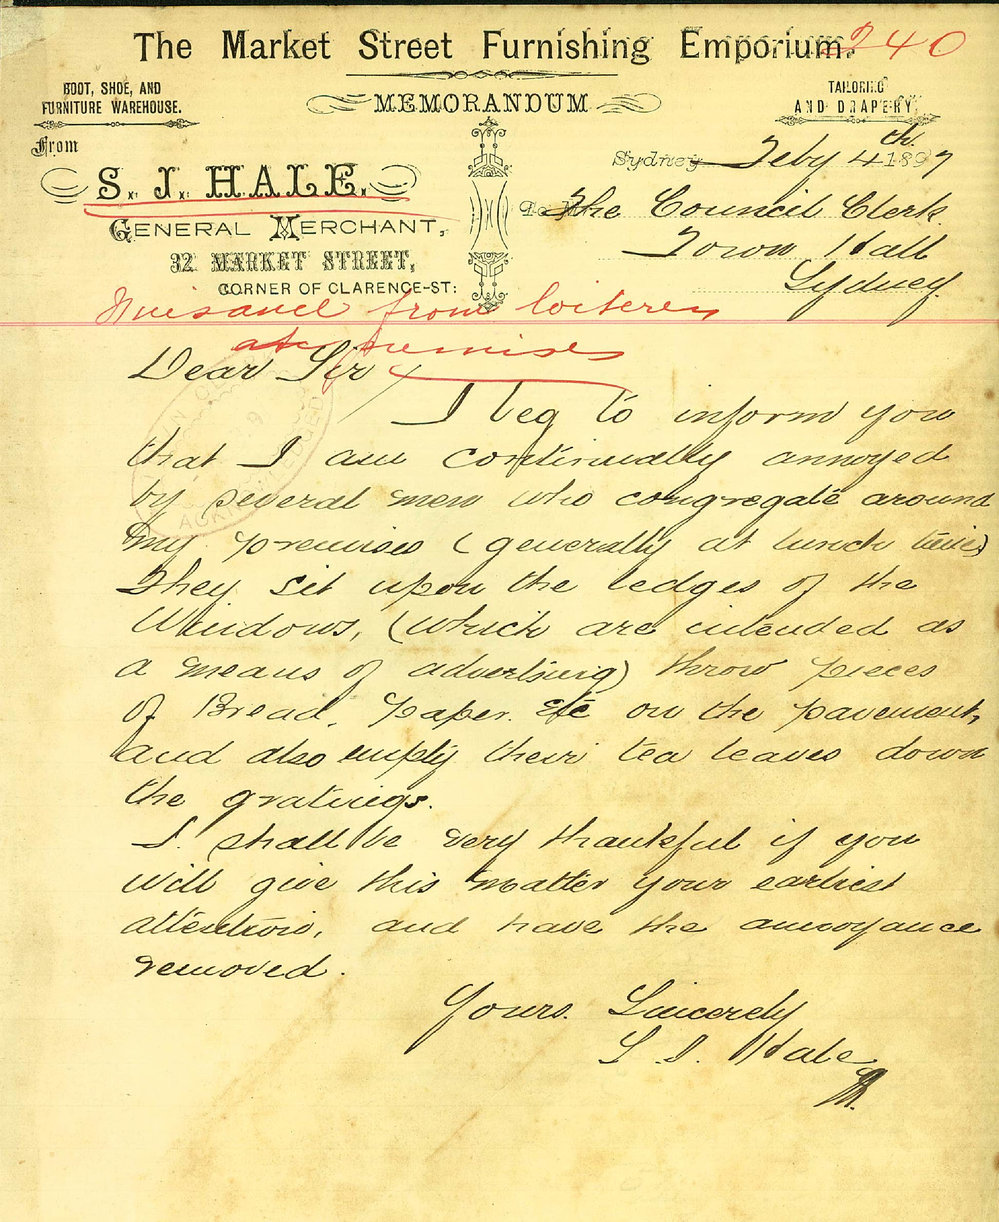 The Market Street Furnishing Emporium.
240
BOOT, SHOE, AND
FURNITURE WAREHOUSE.
MEMORANDUM
TAILORING
AND DRAPERY.
From
S. J. HALE,
GENERAL MERCHANT,
32 MARKET STREET,
CORNER OF CLARENCE-ST:
Sydney Feby 4th 1897
To The Council Clerk
Town Hall
Sydney.
Nuisance from loiterers
at premises
Dear Sir
I beg to inform you
that I am continually annoyed
by several men who congregate around
my premises (generally at lunch time)
They sit upon the ledges of the
Windows, (which are intended as
a means of advertising) throw pieces
of Bread, paper. etc on the pavement,
and also empty their tea leaves down
the gratings.
I shall be very thankful if you
will give this matter your earliest
attention, and have the annoyance
removed.
Yours. Sincerely
S. J. Hale